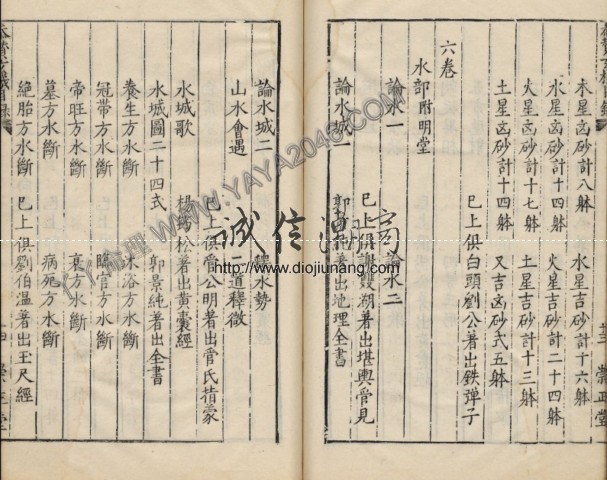 木星凶砂計八躰 水星吉砂計十六躰
火星凶砂計十四躰 火星吉砂計二十四躰
火星凶砂計十七躰 土星吉砂計十三躰
土星凶砂計十四躰 又吉凶砂式五躰
已上俱白頭劉公著出鉄弹子
六卷
水部附明堂
論水一 論水二
已上俱謝雙湖著出堪輿管見
論水城一 郭景純著出地理全書
論水城二 水勢
山水會遇 二道釋微
已上俱管公明著出管氏指蒙
水城歌 楊筠松著出黄囊經
水城圖二十四式 郭景純著出全書
養生方水斷 沐浴方水斷
冠帶方水斷 臨官方水斷
帝旺方水斷 衰方水斷
墓方水斷 病死方水斷
絶胎方水斷 已上俱劉伯温著出玉尺經
崇正堂
http://www.diojiunang.com
WWW.YAYA2048.COM